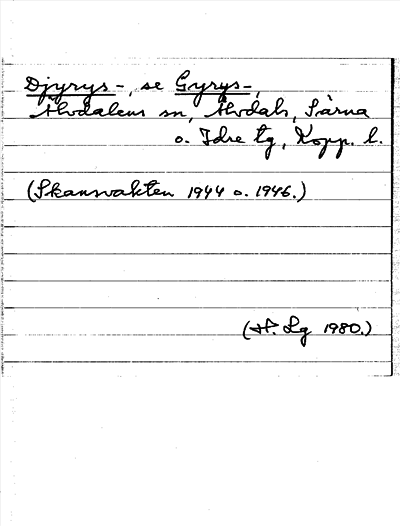 Djyrys-, se Gyrys-,
Älvdalens sn, Älvdals, Särna
o. Idre tg, Kopp. l.
(Skansvakten 1944 o. 1946.)
(H. Lg 1980.)